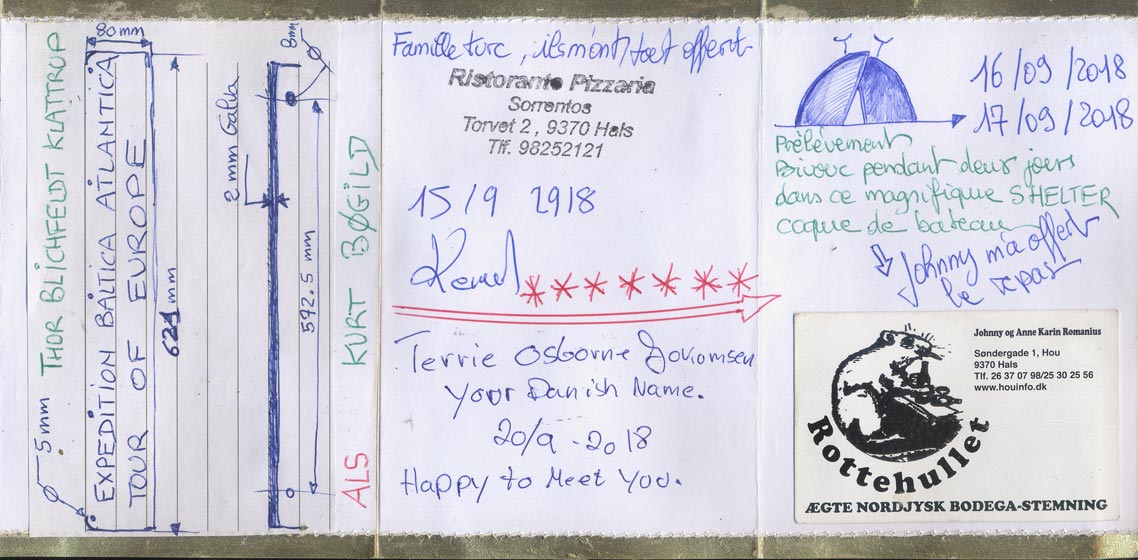 THOR BLICHFEDT KLATTRUP
80 mm
EXPEDITION BALTICA ATLANTICA
TOUR OF EUROPE
621 mm
Ø 5 mm
2 mm
8mm
Ø
592.5 mm
KURT BØGILD
ALS
Famille turc, ils m'ont tout offert
Ristorante Pizzaria
Sorrentos
Torvet 2, 9370 Hals
Tlf. 98252121
15/9 2918
Terrie Osborne
Your Danish Name.
20/9 - 2018
Happy to Meet You.
16/09/2018
17/09/2018
Prélèvement
Bivouc pendant deux jours
dans ce magnifique SHELTER
coque de bateau
Johnny m'a offert
le repas
Johnny og Anne Karin Romanius
Søndergade 1, Hou
9370 Hals
Tlf. 26 37 07 98/25 30 25 56
www.houinfo.dk
Rottehullet
ÆGTE NORDJYSK BODEGA-STEMNING